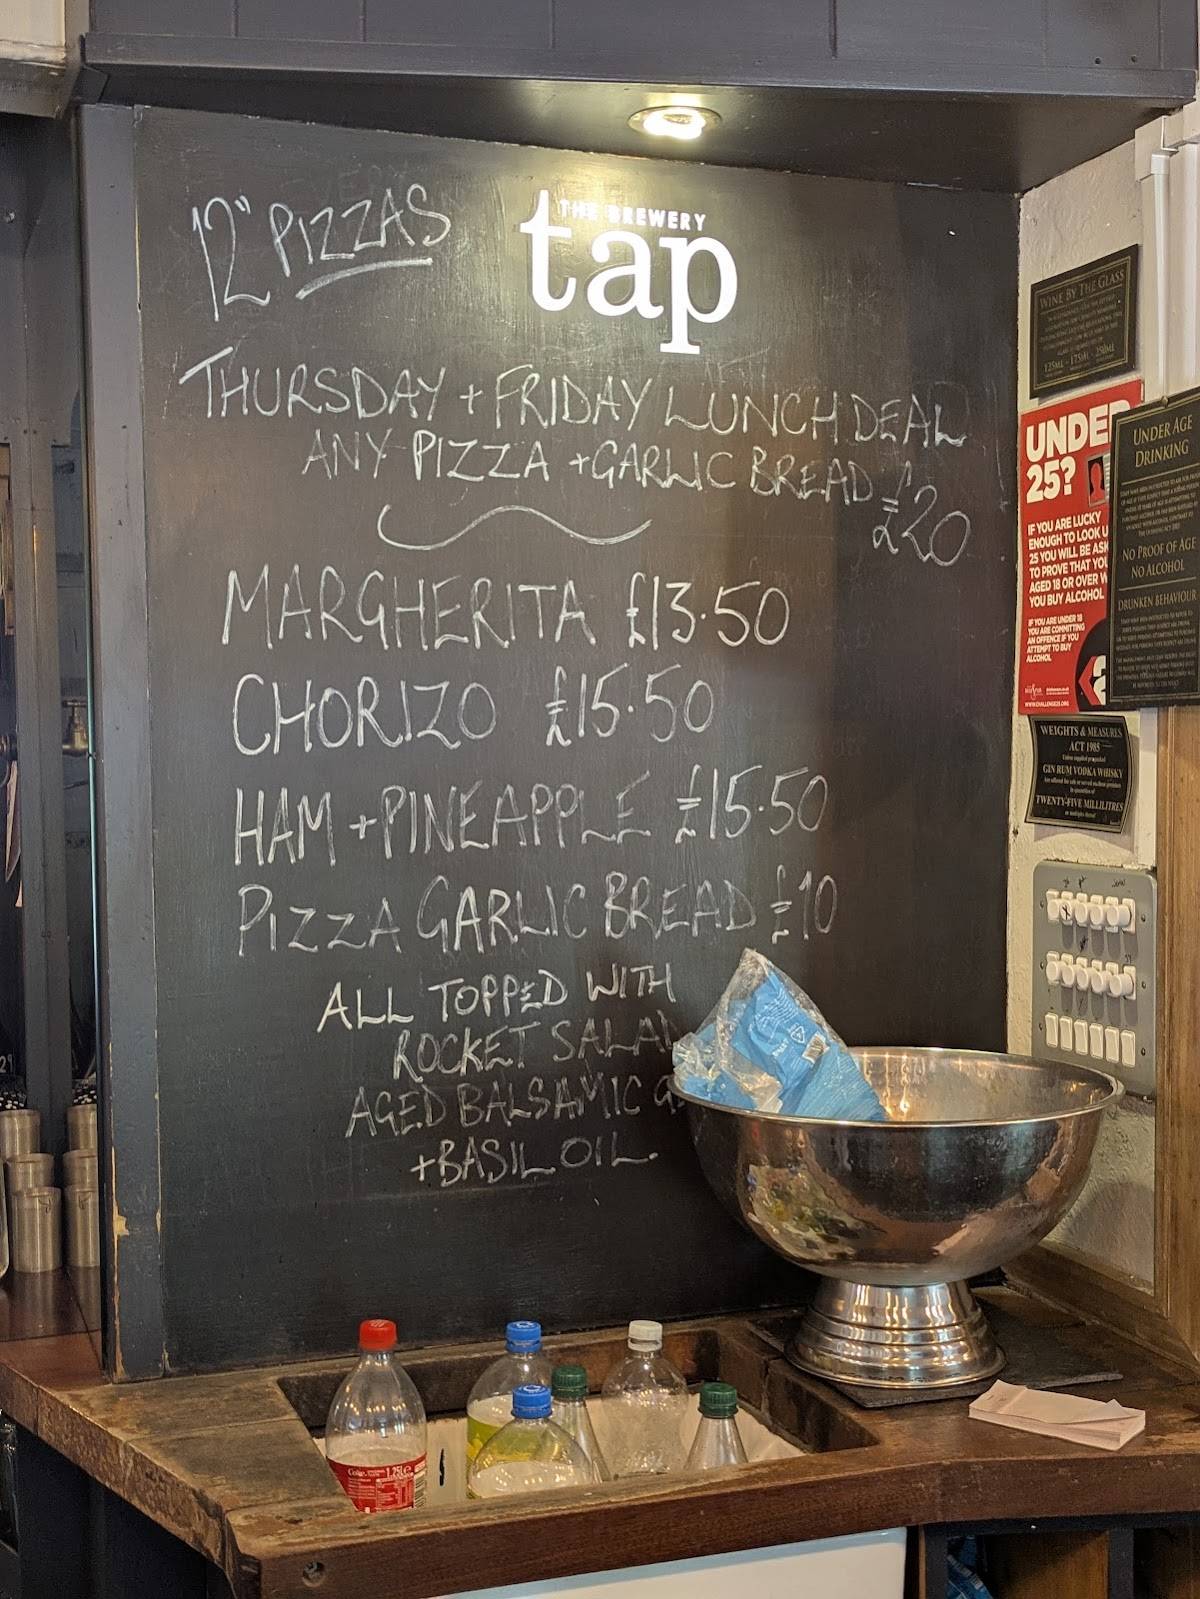 12" PIZZAS
THE BREWERY
tap
THURSDAY + FRIDAY LUNCH DEAL
ANY PIZZA + GARLIC BREAD £20
MARGHERITA £13.50
CHORIZO £15.50
HAM + PINEAPPLE £15.50
PIZZA GARLIC BREAD £10
ALL TOPPED WITH
ROCKET SALAD
AGED BALSAMIC
+ BASIL OIL.
WINE BY THE GLASS
125ML - 175ML - 250ML
UNDER
25?
IF YOU ARE LUCKY
ENOUGH TO LOOK
25 YOU WILL BE
TO PROVE THAT
AGED 18 OR OVER
YOU BUY ALCOHOL
IF YOU ARE UNDER 18
YOU ARE COMMITTING
AN OFFENCE IF YOU
ATTEMPT TO BUY
ALCOHOL
UNDER AGE
DRINKING
NO PROOF OF AGE
NO ALCOHOL
DRUNKEN BEHAVIOUR
WEIGHTS & MEASURES
ACT 1985
GIN RUM VODKA WHISKY
TWENTY-FIVE MILLILITRES
or multiples thereof
Coke 1.25L